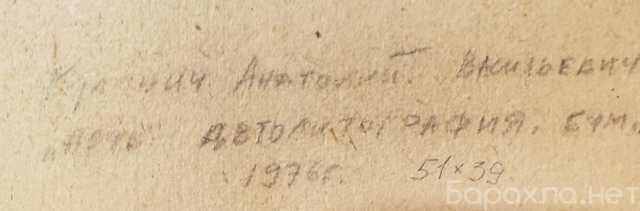 Анатолий Васильевич
автолитография, бум.
1976г. 51×39
Барахла.нет